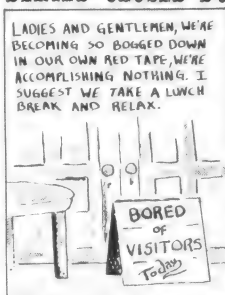 LADIES AND GENTLEMEN, WE'RE
BECOMING SO BOGGED DOWN
IN OUR OWN RED TAPE, WE'RE
ACCOMPLISHING NOTHING. I
SUGGEST WE TAKE A LUNCH
BREAK AND RELAX.
BORED
of
VISITORS
Today